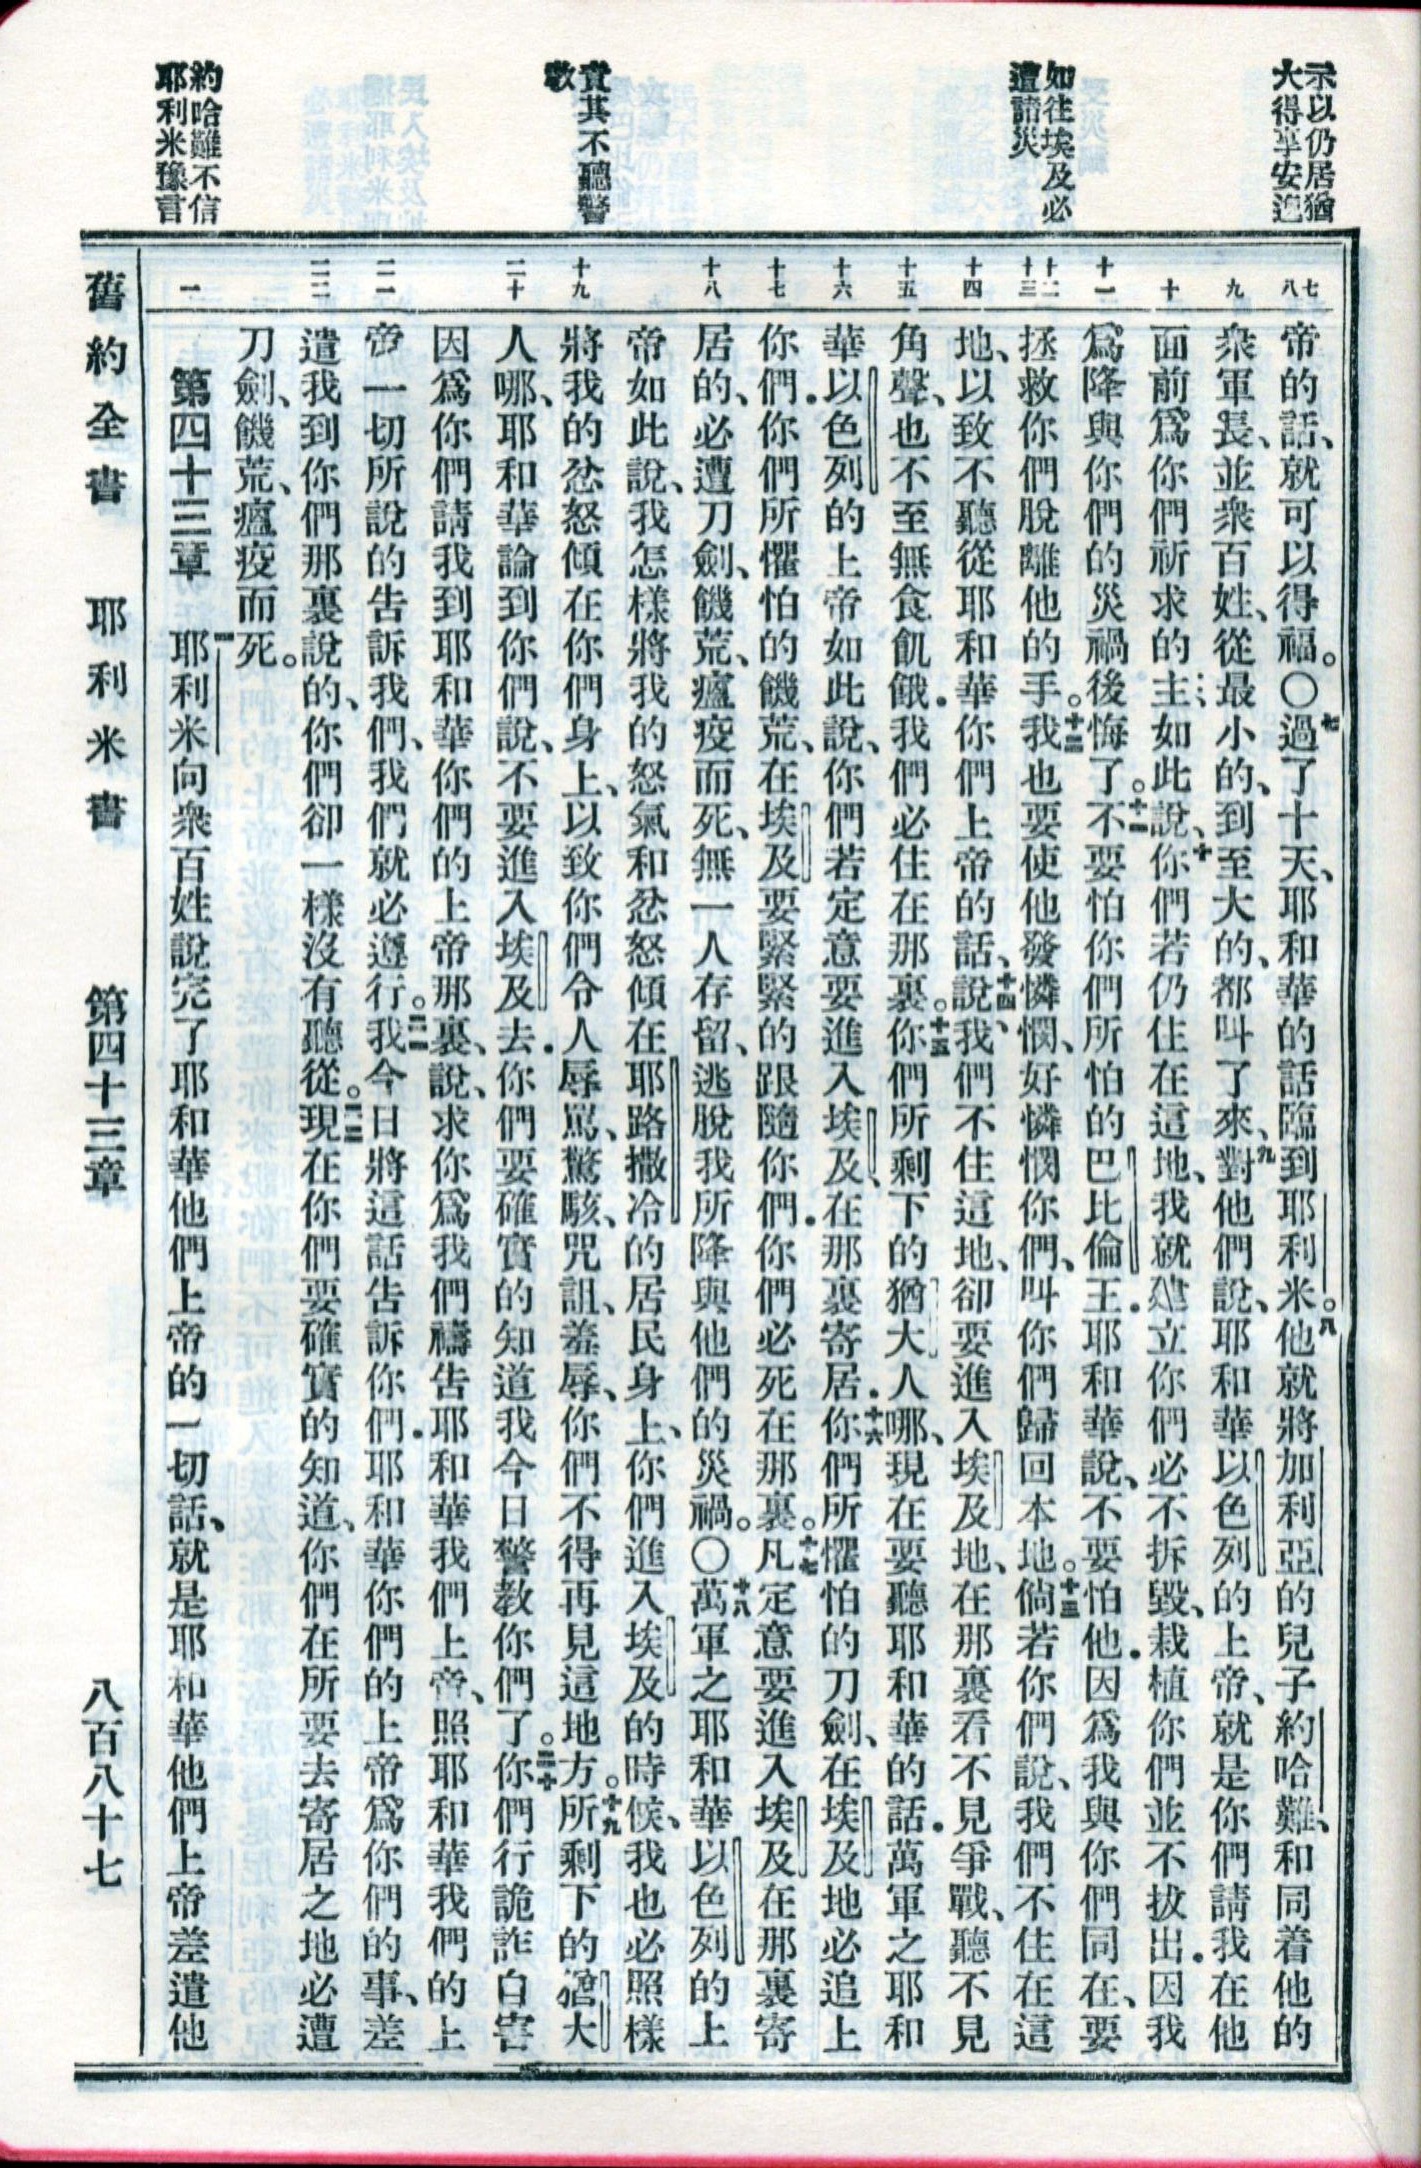 示以仍居猶
大得享安迤
如往埃及必
遭諸災
責其不聽警
敎
約哈難不信
耶利米豫言
七
八
九
十
十一
十二
十三
十四
十五
十六
十七
十八
十九
二十
二一
二二
一
帝的話、就可以得福。〇七過了十天、耶和華的話臨到耶利米。八他就將加利亞的兒子約哈難、和同着他的
衆軍長、並衆百姓、從最小的、到至大的、都叫了來、九對他們說、耶和華以色列的上帝、就是你們請我在他
面前爲你們祈求的主、如此說、十你們若仍住在這地、我就建立你們必不拆毀、栽植你們並不拔出．因我
爲降與你們的災禍後悔了。十一不要怕你們所怕的巴比倫王．耶和華說、不要怕他．因爲我與你們同在、要
拯救你們脫離他的手。十二我也要使他發憐憫、好憐憫你們、叫你們歸回本地。十三倘若你們說、我們不住在這
地、以致不聽從耶和華你們上帝的話、十四說、我們不住這地、卻要進入埃及地、在那裏看不見爭戰、聽不見
角聲、也不至無食飢餓．我們必住在那裏。十五你們所剩下的猶大人哪、現在要聽耶和華的話．萬軍之耶和
華以色列的上帝如此說、你們若定意要進入埃及、在那裏寄居．十六你們所懼怕的刀劍、在埃及地必追上
你們．你們所懼怕的饑荒、在埃及要緊緊的跟隨你們．你們必死在那裏。十七凡定意要進入埃及在那裏寄
居的、必遭刀劍、饑荒、瘟疫而死、無一人存留、逃脫我所降與他們的災禍。〇十八萬軍之耶和華以色列的上
帝如此說、我怎樣將我的怒氣和忿怒傾在耶路撒冷的居民身上、你們進入埃及的時候、我也必照樣
將我的忿怒傾在你們身上、以致你們令人辱罵、驚駭、咒詛、羞辱、你們不得再見這地方。十九所剩下的猶大
人哪、耶和華論到你們說、不要進入埃及去．你們要確實的知道我今日警敎你們了。二十你們行詭詐自害
因爲你們請我到耶和華你們的上帝那裏、說、求你爲我們禱告耶和華我們上帝、照耶和華我們的上
帝一切所說的告訴我們、我們就必遵行。二一我今日將這話告訴你們．耶和華你們的上帝爲你們的事、差
遣我到你們那裏說的、你們卻一樣沒有聽從。二二現在你們要確實的知道、你們在所要去寄居之地必遭
刀劍、饑荒、瘟疫而死。
第四十三章　一耶利米向衆百姓說完了耶和華他們上帝的一切話、就是耶和華他們上帝差遣他
舊約全書　耶利米書　第四十三章　八百八十七